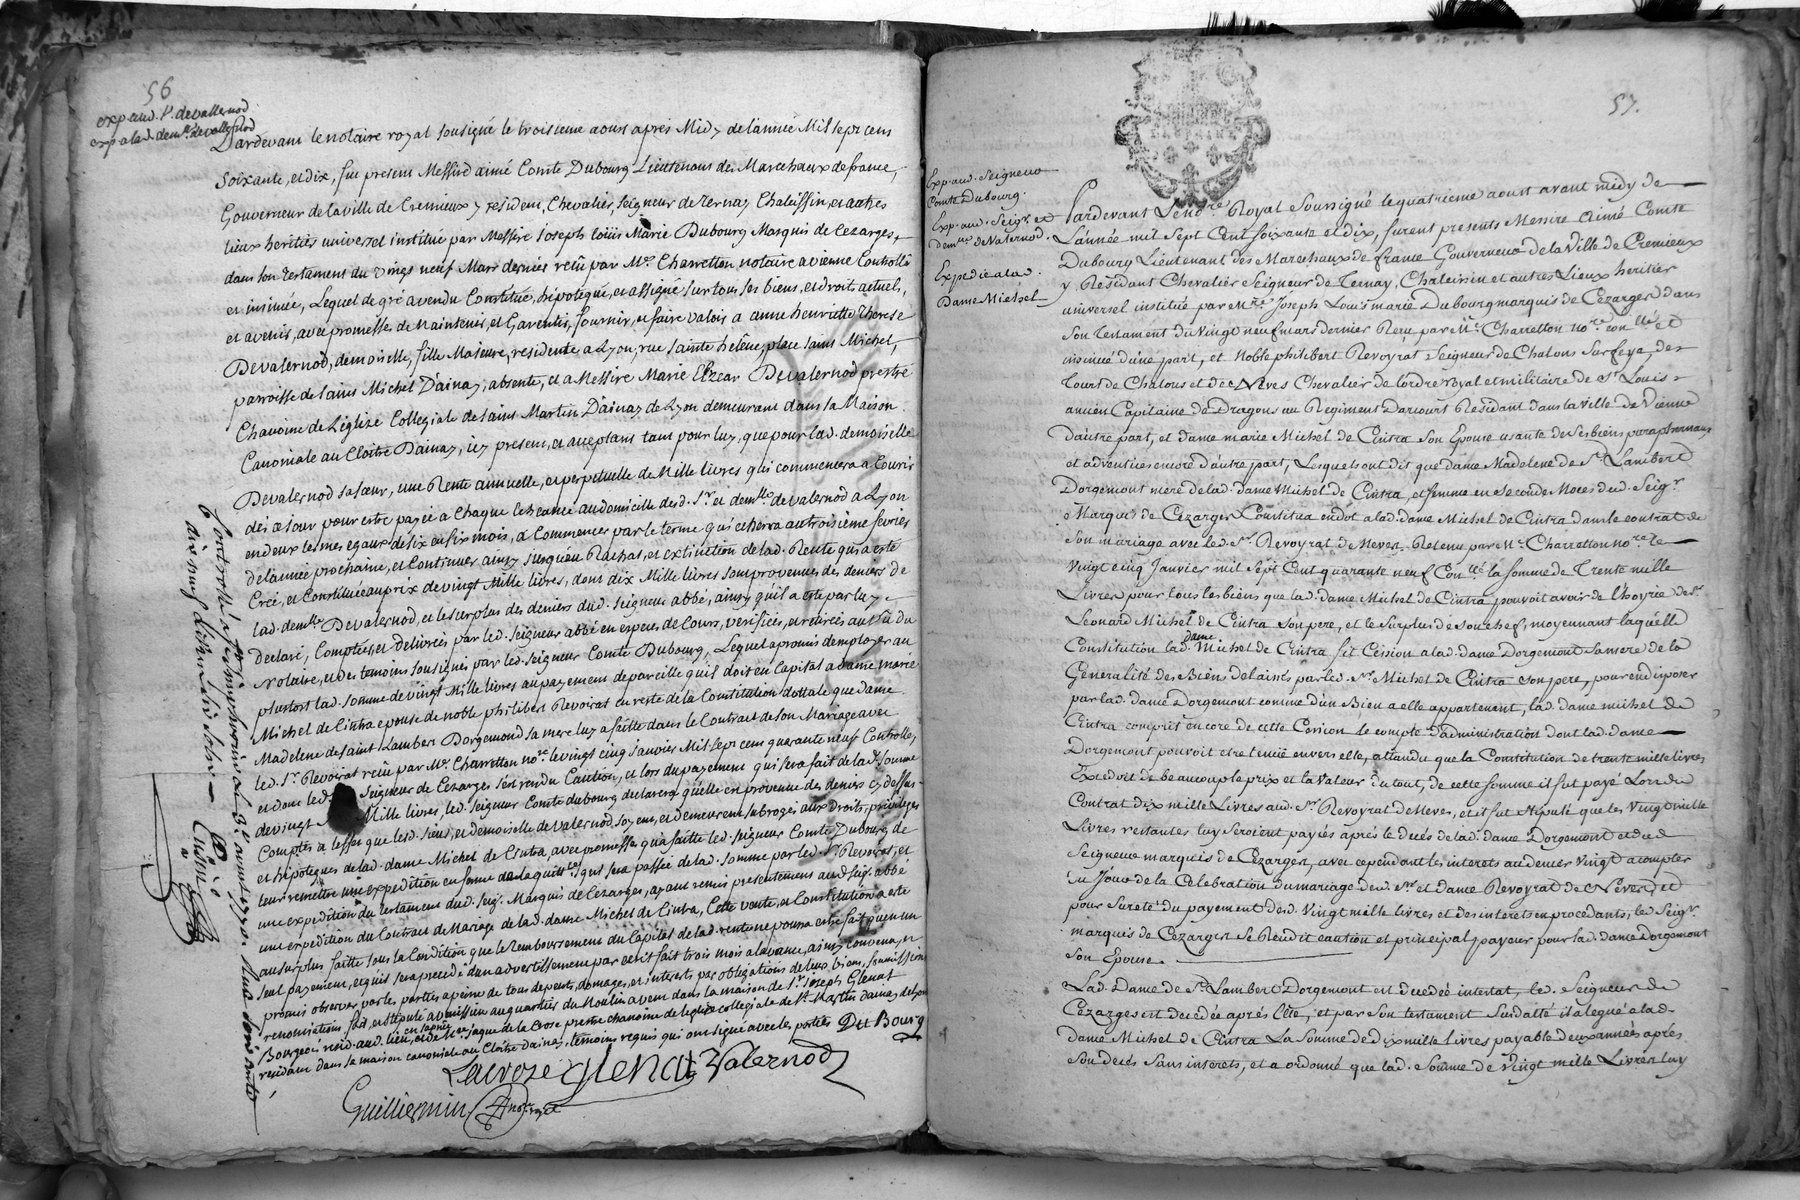 56
exp aud. Sr. devallernod
exp a lad. demlle. devallernod
Pardevant le notaire royal sousigné le troisieme aoust apres Midy de lannée Mil sept cens
soixante, et dix, fut present Messire aimé Comte Dubourg Lieutenant des Marechaux de france,
Gouverneur de la ville de Cremieux y resident, Chevalier, seigneur de Ternay Chaleissin, et autres
lieux heritier universel institué par Messire Joseph Loüis Marie Dubourg Marquis de Cezarges,
dans son testament du vingt neuf Mars dernier reçû par Me. Charretton notaire a vienne Controllé
et insinué, Lequel de gré a vendu Constitué, hipotequé, et assigné sur tous ses biens, et droits actuels,
et avenir, avec promesse de Maintenir, et Garentir, fournir, et faire valoir a anne henriette Therese
Devalernod, demoiselle, fille Majeure, residente a Lyon, rue sainte helene, place saint Michel,
parroisse de saint Michel D'ainay, absente, et a Messire Marie Elzear Devalernod prestre
Chanoine de L'eglize Collegiale de saint Martin D'ainay de Lyon demeurant dans sa Maison
Canoniale au Cloitre D'ainay, icy present, et acceptant tant pour luy, que pour lad. demoiselle
Devalernod sa sœur, une Rente annuelle, et perpetuelle de Mille livres qui commencera a Courir
dès ce jour pour estre payée a Chaque echeance au domicille desd. Sr. et demlle. de valernod a Lyon
en deux termes egaux de six en six mois, a Commencer par le terme qui echerra au troisième fevrier
de lannée prochaine, et Continuer ainsy jusqu'au Rachat, et extinction de lad. Rente qui a esté
Créé, et Constituée au prix de vingt Mille livres, dont dix Mille livres sont provenues des deniers de
lad. demlle. Devalernod, et le surplus des deniers dud. seigneur abbé, ainsy qu'il a esté par luy
declaré, Comptés, et delivrés par led. seigneur abbé en especes de Cours, verifiées, et retirées au vû du
Notaire, et des temoins sousignés par led. seigneur Comte Dubourg, Lequel a promis d'employer au
plustost lad. somme de vingt Mille livres au payement de pareille qu'il doit en Capital a dame marie
Michel de Cintra epouse de noble philibert Revoirat en reste de la Constitution dottale que dame
Madelene de saint Lambert Dorgemond sa mere luy a faitte dans le Contract de son Mariage avec
led. Sr. Revoirat reçû par Me. Charretton nore. le vingt cinq Janvier Mil sept cens quarante neuf Controllé,
et dont led. Seigneur de Cezarges s'est rendu Caution, et lors du payement qui sera fait de lad. somme
de vingt Mille livres, led. seigneur Comte dubourg declarera qu'elle en provenue des deniers cy dessus
Comptés a l'effet que lesd. sieur, et demoiselle de valernod soyent, et demeurent subrogés aux Droits, privileges
et hipoteques de lad. dame Michel de Cintra, avec promesse qu'a faitte led. seigneur Comte Dubourg de
leur remettre une expedition en forme de la quittce. qui sera passée de lad. somme par led. Sr. Revoirat, et
une expedition du testament dud. seig. Marquis de Cezarges, ayant remis presentement aud. seig. abbé
une expedition du Contract de Mariage de lad. dame Michel de Cintra, Cette vente, et Constitution a esté
au surplus faitte sous la Condition que le Remboursement du Capital de lad. rente ne pourra estre fait qu'en un
seul payement, et qu'il sera precedé d'un advertissement par ecrit fait trois mois a lavance, ainsy convenu, et
promis observer par les parties a peine de tous depents, domages, et interests par obligations de leurs biens, soumissions
renonciations, fait, et stipulé au quartier du Moulin a vent dans la maison de Sr. joseph Glenat
Bourgeois resid. aud. lieu, et en sa presce. et de Me. jaque de la Croze prestre chanoine de leglize collegiale de St. Martin dainay de Lyon
residant dans sa maison canoniale au Cloitre dainay, temoins requis qui ont signé avec les parties Du Bourg
Lacroze glenat Valernod
Guilliermin nore. royal
57.
Exp. aud. Seigneur
Comte Dubourg.
Exp. aud. Seigr. et
demlle. de Valernod.
Expedié a lad.
Dame Michel
Pardevant Le nore. Royal Soussigné le quatrieme aoust avant midy de
L'année mil Sept Cent soixante et dix, furent presents Messire Aimé Comte
Dubourg Lieutenant des Marechaux de france Gouverneur de la Ville de Cremieux
y Résidant Chevalier Seigneur de Ternay, Chaleissin et autres Lieux heritier
universel institué par Mre. Joseph Louis marie Dubourg marquis de Cezarges dans
Son Testament du vingt neuf mars dernier Reçu par Me. Charretton nore. conllé. et
insinué d'une part, et Noble philibert Revoyrat Seigneur de Chalons Surfeya, des
Tours de Chalons et de Neves Chevalier de l'ordre royal et militaire de St. Louis
ancien Capitaine de Dragons au Regiment Darcourt Residant dans la Ville de Vienne
d'autre part, et dame marie Michel de Cintra Son Epouse usante de ses biens paraphernaux
et adventices encore d'autre part, Lesquels ont dit que dame Madelene de St. Lambert
Dorgemont mere de lad. dame Michel de Cintra, et femme en Seconde Noces dud. Seigr.
Marquis de Cezarges Constitua en dot a lad. dame Michel de Cintra dans le contrat de
Son mariage avec led. Sr. Revoyrat de Neves, Retenu par Me. Charretton nore. le
vingt cinq Janvier mil Sept Cent quarante neuf Conllé. la Somme de Trente mille
Livres pour tous les biens que lad. dame Michel de Cintra pouvoit avoir de l'hoyrie de Sr.
Leonard Michel de Cintra Son pere, et le Surplus de Son chef, moyennant laquélle
Constitution lad. dame Michel de Cintra fit Cession a lad. dame Dorgemont Sa mere de la
Generalité des Biens delaissés par led. Sr. Michel de Cintra son pere, pour en disposer
par lad. dame Dorgemont comme d'un Bien a elle appartenent, lad. dame michel de
Cintra comprit encore de cette Cession le compte d'administration dont lad. dame
Dorgemont pouvoit etre tenüe envers elle, attandu que la Constitution de trente mille livres
Excedoit de beaucoup le prix et la Valeur du tout, de cette somme il fut payé Lors du
Contrat dix mille Livres aud. Sr. Revoyrat de Neves, et il fut stipulé que les Vingt mille
Livres restantes luy Seroient payées après le decés de lad. dame Dorgemont et dud.
Seigneur marquis de Cezarges, avec cependant les interets au denier Vingt a compter
du Jour de la Celebration du mariage dud. Sr. et dame Revoyrat de Neves, et
pour Sureté du payement desd. Vingt mille livres et des interets en procedants, led. Seigr.
marquis de Cezarges Se Rendit caution et principal payeur pour lad. dame Dorgemont
Son Epouse
Lad. Dame de St. Lambert Dorgemont est decedée intestat, led. Seigneur de
Cezarges est decedé après Elle, et par Son testament Susdatté il a legué a lad.
dame Michel de Cintra La Somme de dix mille livres payable deux années après
Son decès Sans interets, et a ordonné que lad. Somme de Vingt mille Livres luy